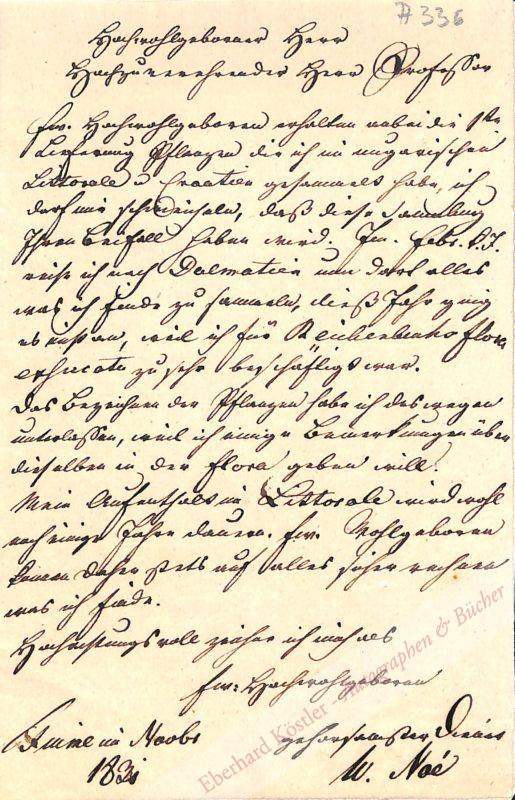 A 336
Hochwohlgeborner Herr
Hochzuverehrender Herr Professor
Ew. Hochwohlgeboren erhalten anbei die 1te
Lieferung Pflanzen die ich im ungarischen
Littorale u Croatien gesammelt habe, ich
darf mir schmeicheln, daß diese Sammlung
Ihren Beifall haben wird. Im Febr. k. J.
reise ich nach Dalmatien um dort alles
was ich finde zu sammeln, dieß Jahr ging
es nicht an, weil ich für Reichenbachs flora
exsiccata zu sehr beschäftigt war.
Das Bezeichnen der Pflanzen habe ich deswegen
unterlassen, weil ich einige Bemerkungen über
dieselben in der flora geben will.
Mein Aufenthalt im Littorale wird wohl
noch einige Jahre dauern. Ew. Wohlgeboren
können daher stets auf alles sicher rechnen
was ich finde.
Hochachtungsvoll zeichne ich mich als
Ew: Hochwohlgeboren
Fiume im Novbr gehorsamster Diener
183 W. Noé
Eberhard Köstler - Autographen & Bücher